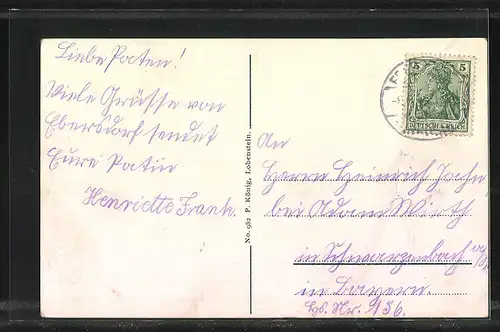 Liebe Paten!
Viele Grüsse von
Ebersdorf sendet
Eure Patin
Henriette Frank.
No. 982 P. König, Lobenstein.
5 5
DEUTSCHES REICH
An
Herrn Heinrich Jahn
bei Adam Wirth
in Schwarzenbach
in Bayern.
Hs. Nr. 156.